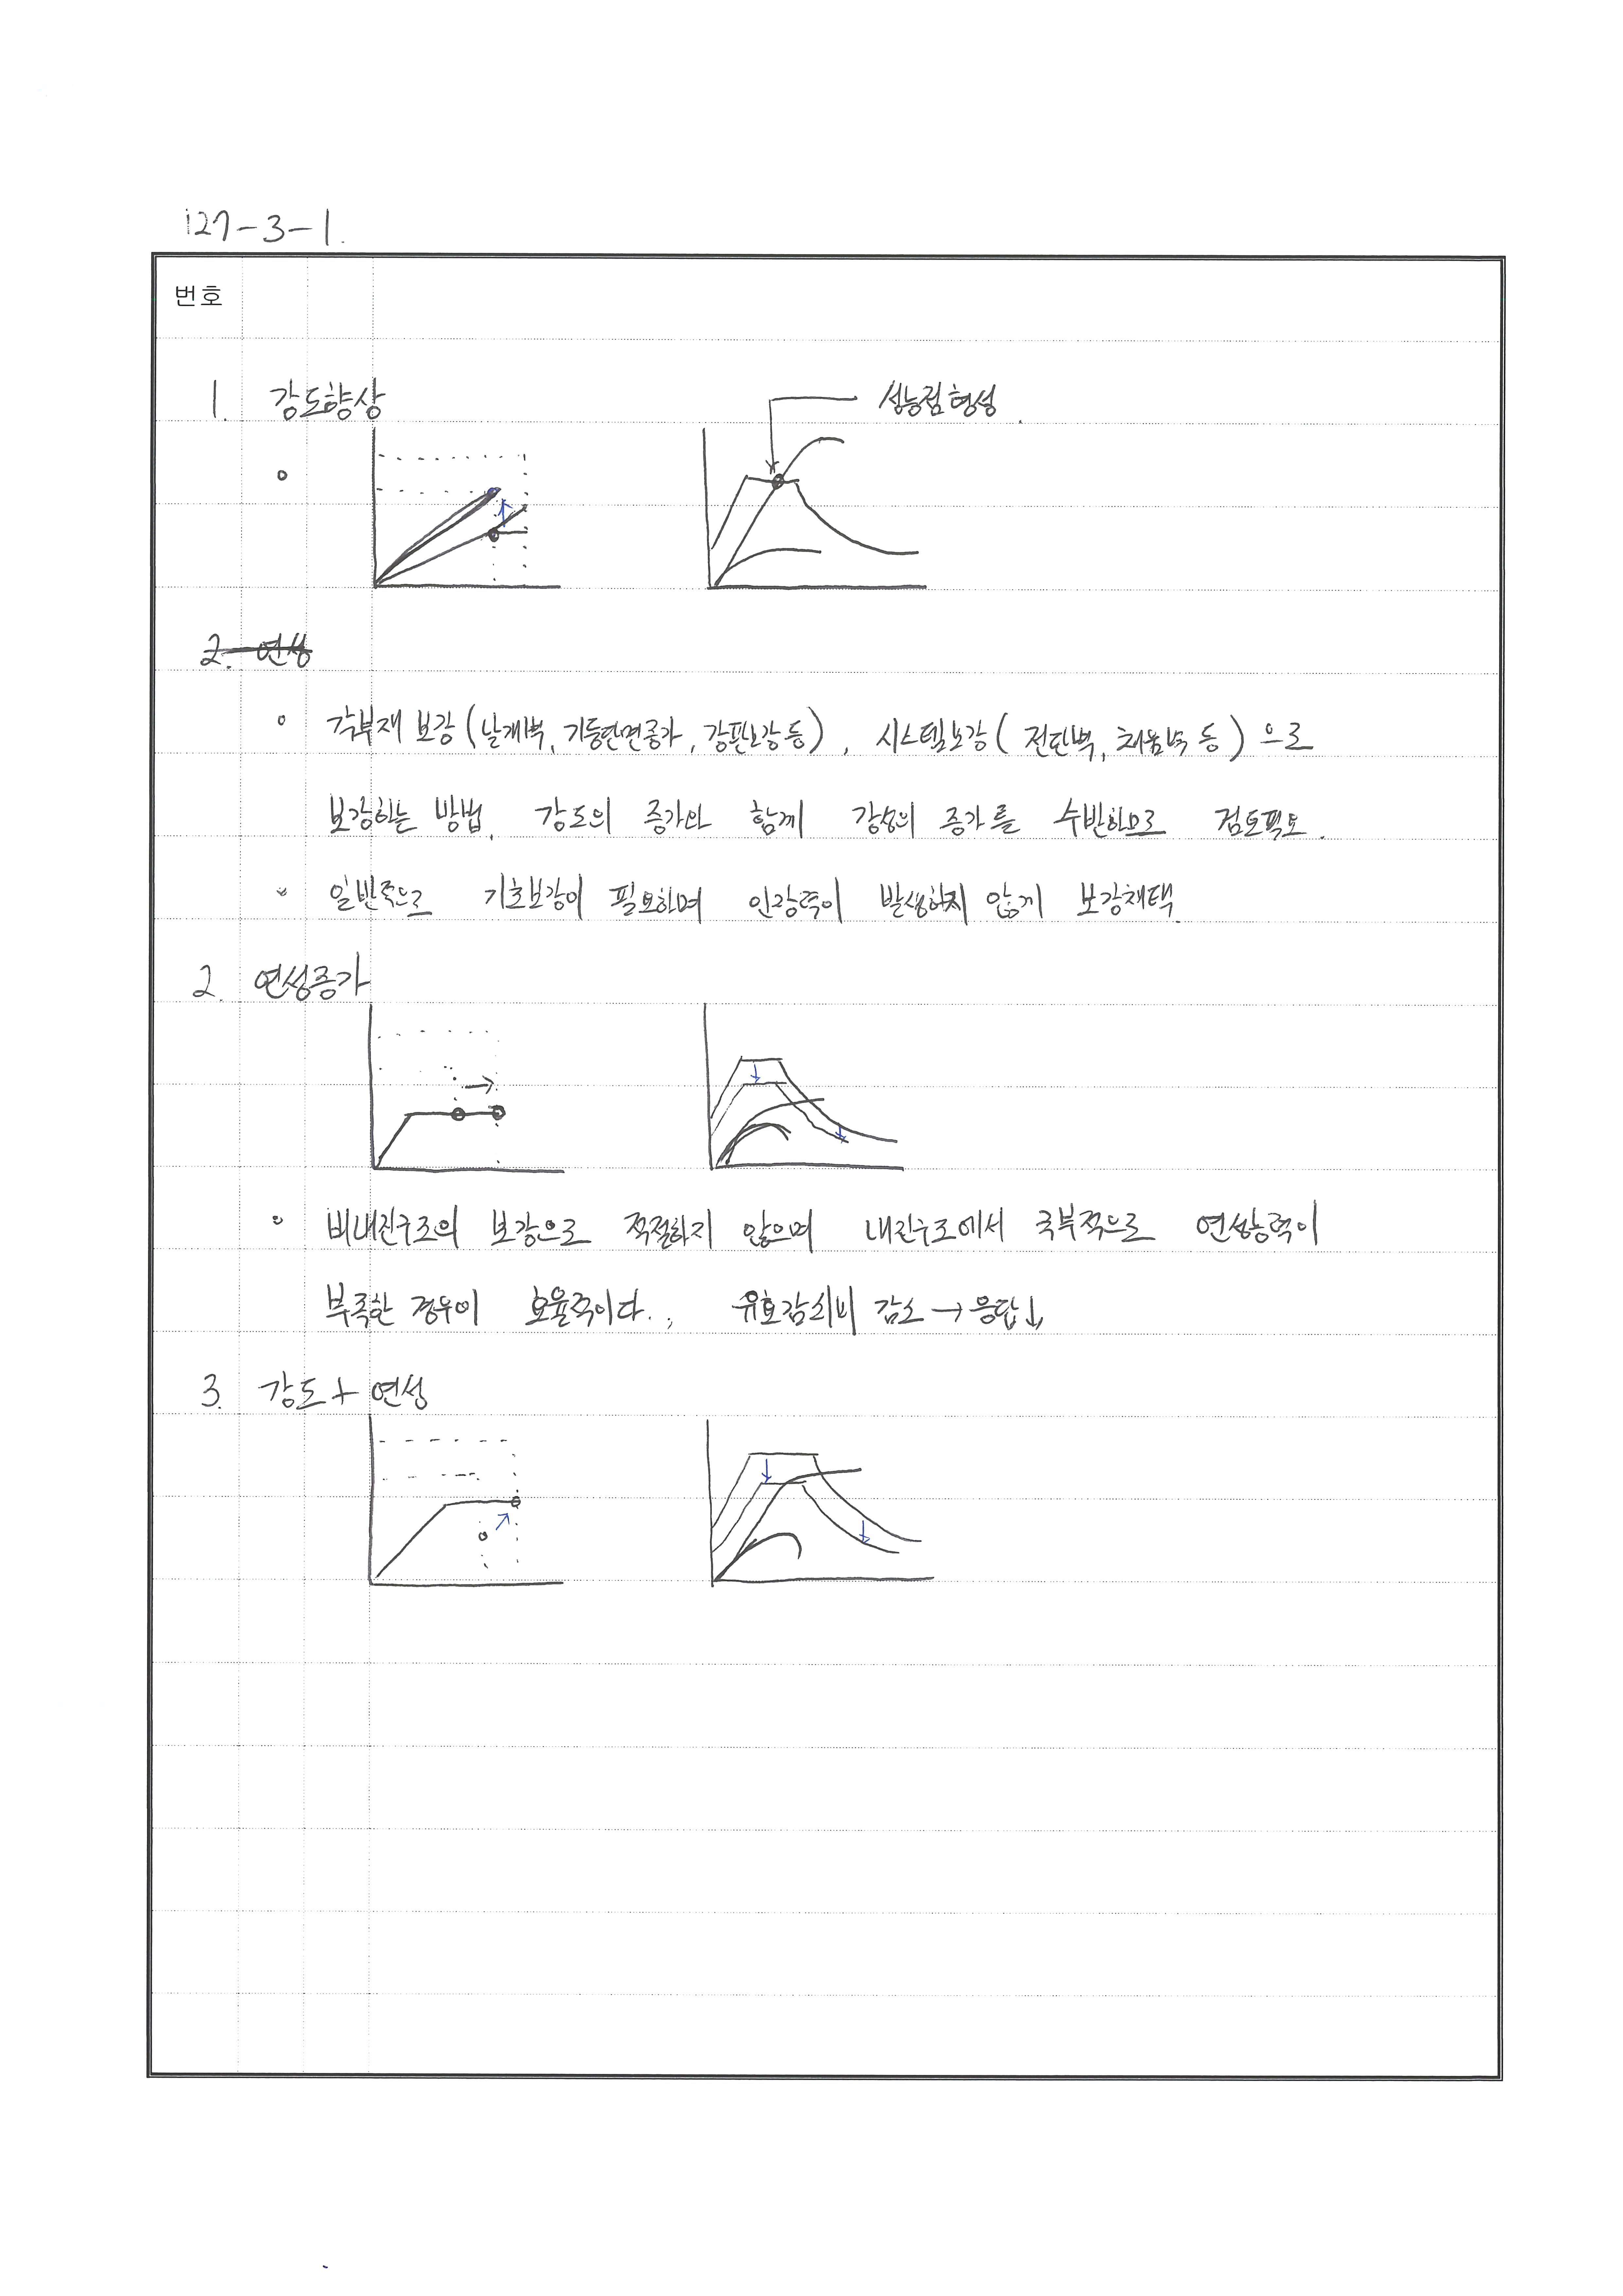 127-3-1.
번호
1. 강도향상
성능점형성.
2. 연성
각부재 보강(날개벽, 기둥단면증가, 강판보강 등), 시스템보강( 전단벽, 채움벽 등 ) 으로
보강하는 방법. 강도의 증가와 함께 강성의 증가를 수반하므로 검토필요.
일반적으로 기초보강이 필요하며 인장력이 발생하지 않게 보강채택.
2. 연성증가
비내진구조의 보강으로 적절하지 않으며 내진구조에서 국부적으로 연성능력이
부족한 경우에 효율적이다., 유효감쇠비 감소 → 응답↓
3. 강도 + 연성